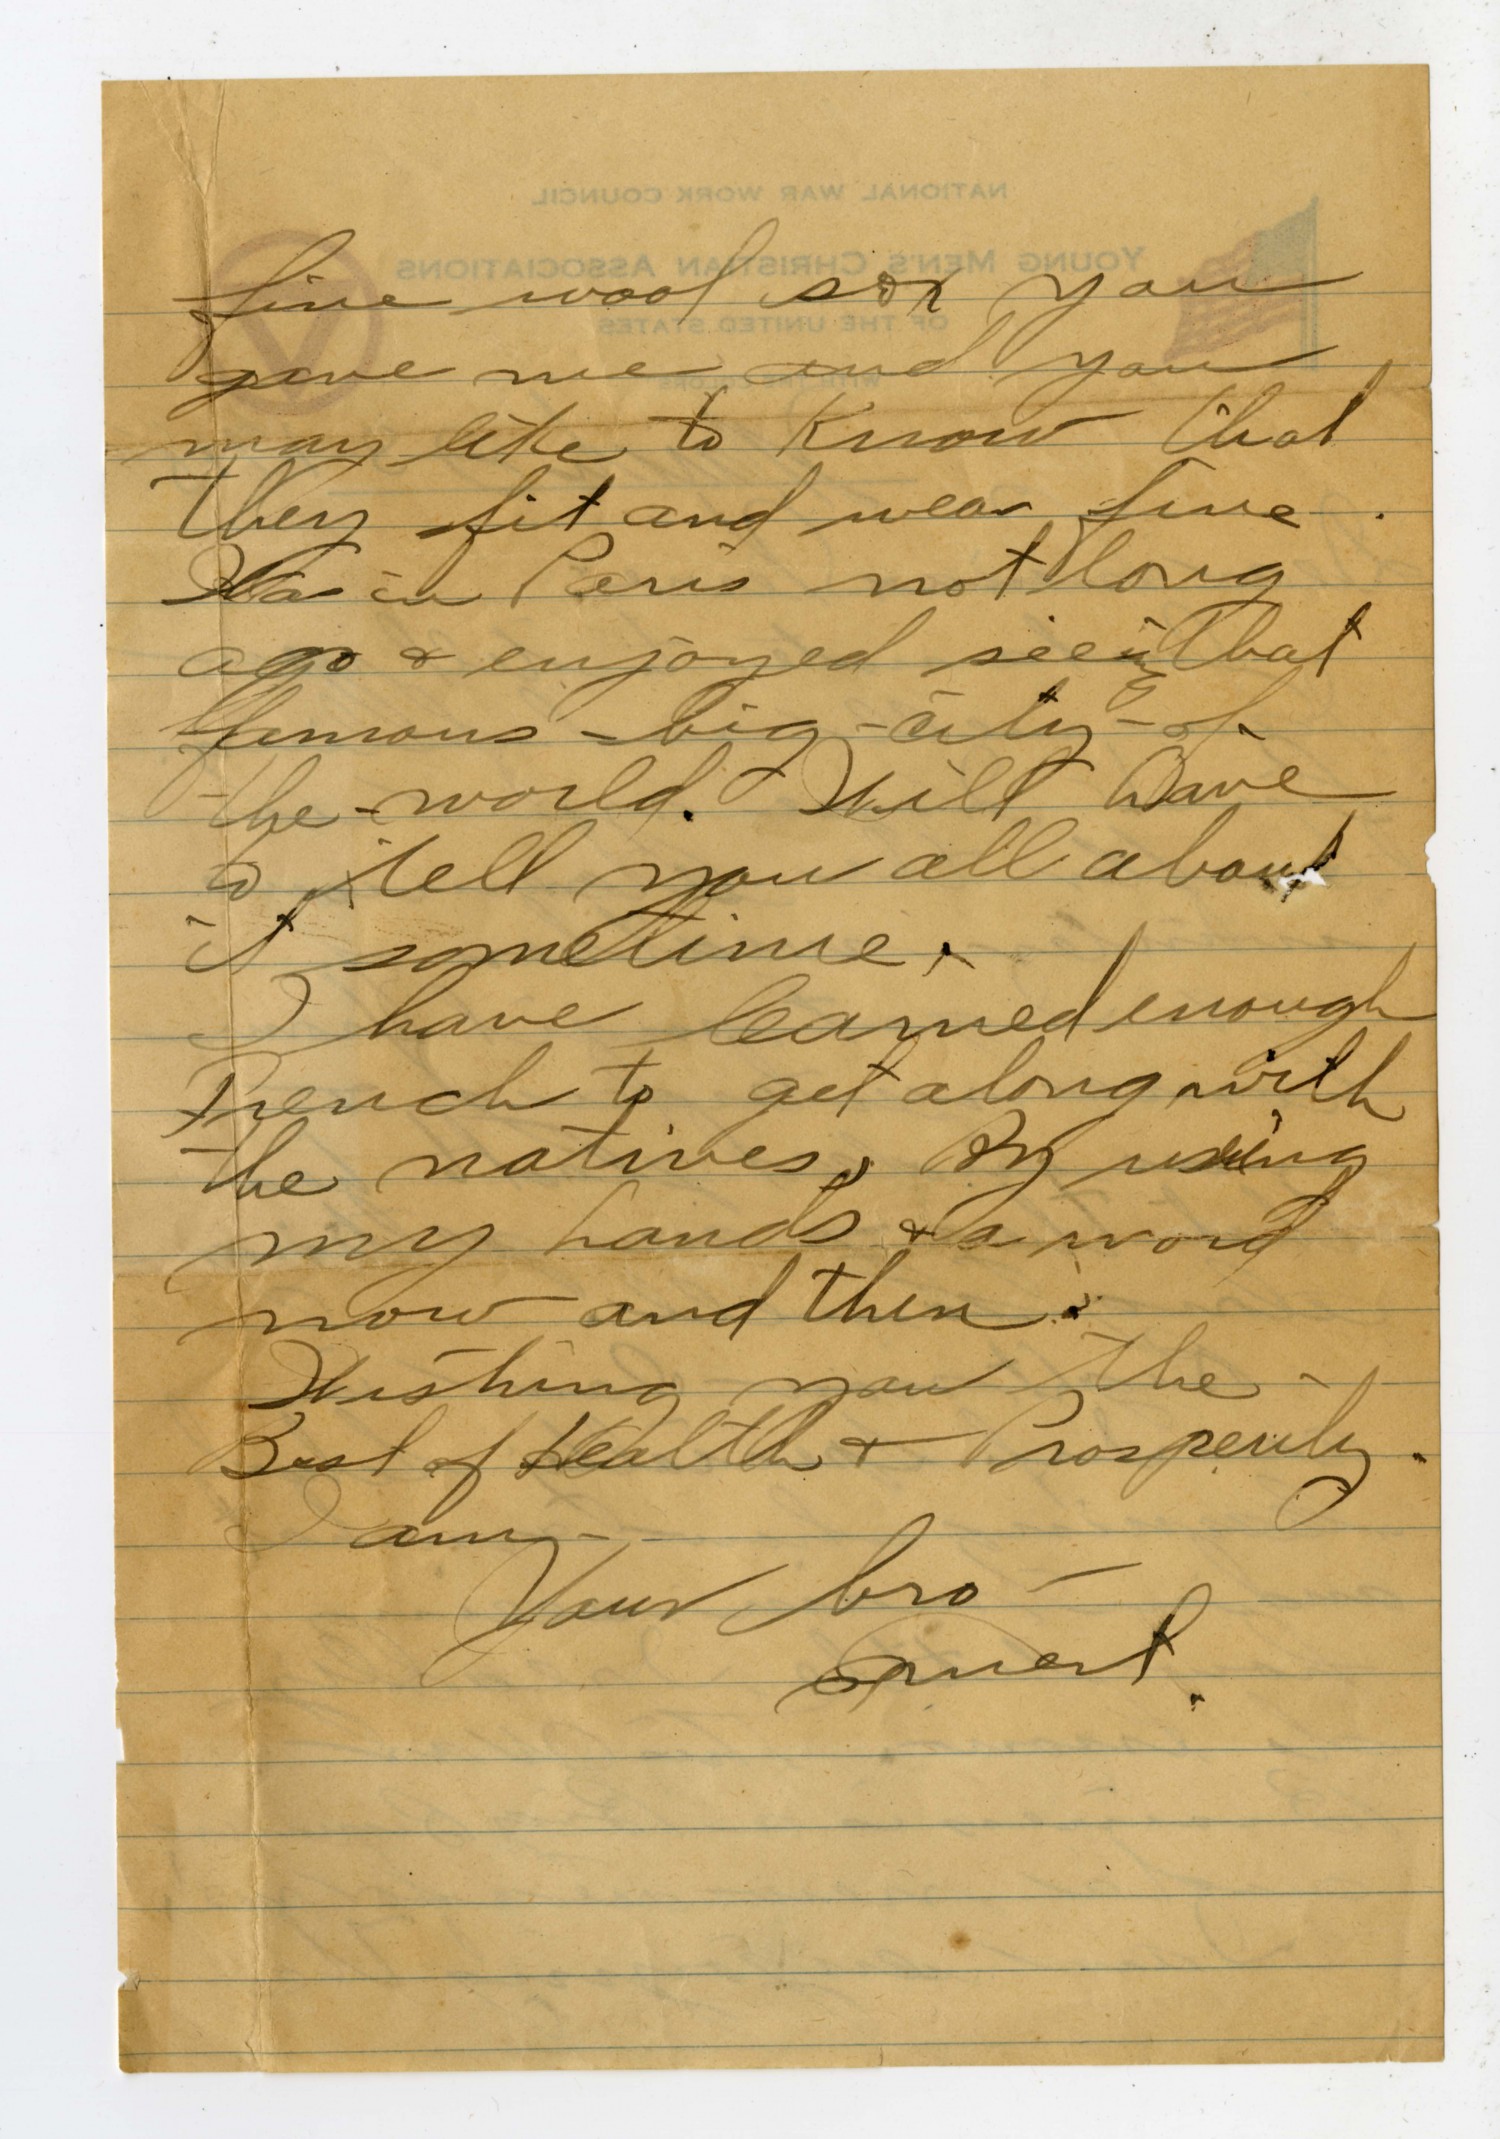 NATIONAL WAR WORK COUNCIL
YOUNG MEN'S CHRISTIAN ASSOCIATIONS
OF THE UNITED STATES
fine wool sox you
gave me and you
may like to know that
they fit and wear fine.
Was in Paris not long
ago & enjoyed seeing that
famous - big - city - of -
the - world. Will have
to tell you all about
it sometime.
I have learned enough
French to get along with
the natives, By using
my hands & a word
now and then.
Wishing you the -
Best of Health & Prosperity.
I am -
Your bro -